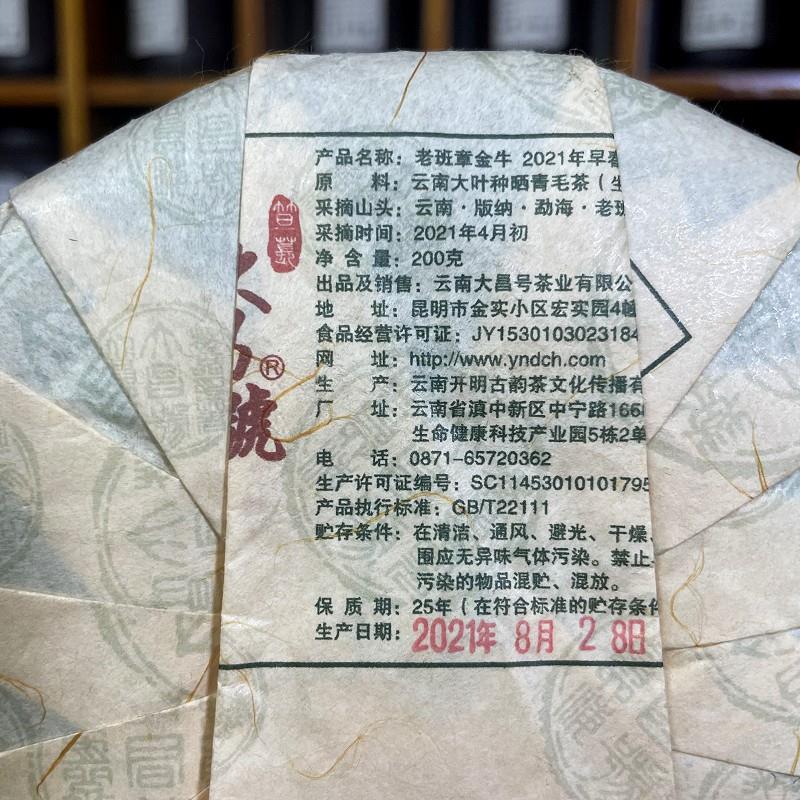 产品名称：老班章金牛 2021年早春
原 料：云南大叶种晒青毛茶（生
采摘山头：云南·版纳·勐海·老班
采摘时间：2021年4月初
净 含 量：200克
出品及销售：云南大昌号茶业有限公
地 址：昆明市金实小区宏实园4幢
食品经营许可证：JY1530103023184
网 址：http://www.yndch.com
生 产：云南开明古韵茶文化传播有
厂 址：云南省滇中新区中宁路166
生命健康科技产业园5栋2单
电 话：0871-65720362
生产许可证编号：SC11453010101795
产品执行标准：GB/T22111
贮存条件：在清洁、通风、避光、干燥、
围应无异味气体污染。禁止
污染的物品混贮、混放。
保 质 期：25年（在符合标准的贮存条件
生产日期：2021年 8月 2 8日
號®